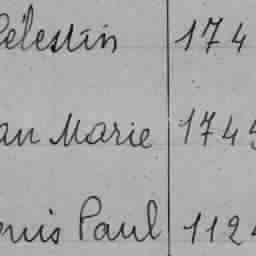 Célestin 174
an Marie 174
ouis Paul 112